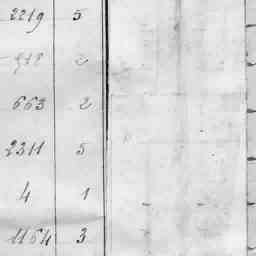 2219 5
2
663 2
2311 5
4 1
1164 3